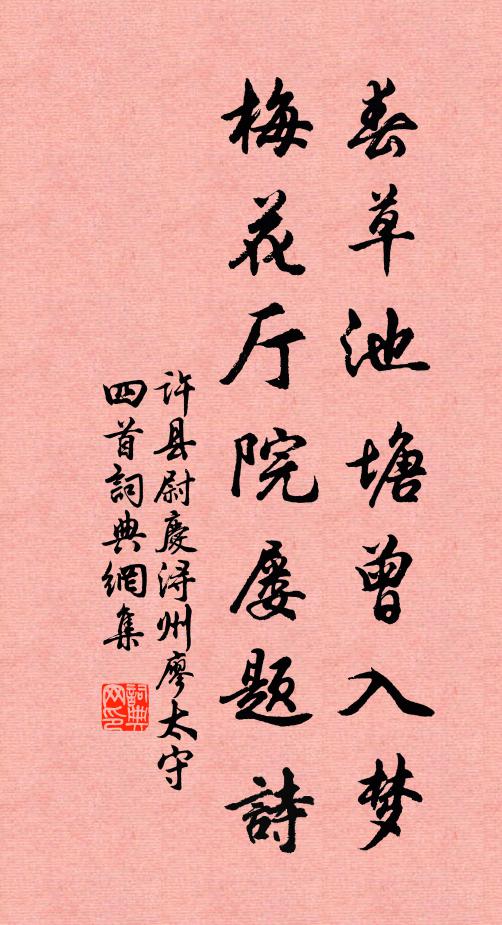 春草池塘曾入梦
梅花厅院屡题詩
许县尉慶浔州廖太守
四首詞典網集
詞典网印